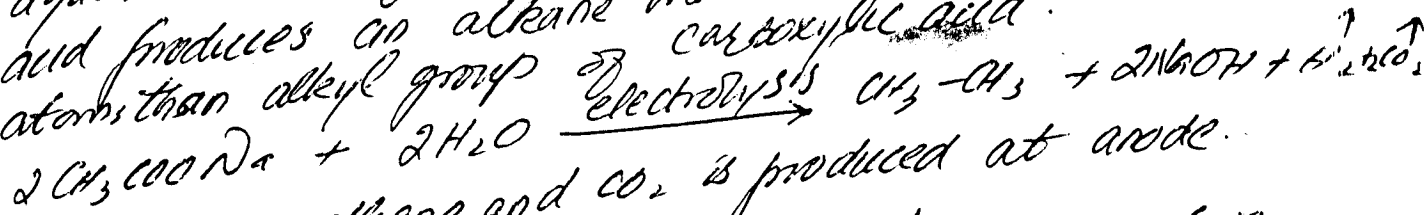 acid produces an alkane
atoms than alkyl group of carboxylic acid.
2CH₃COONa + 2H₂O electrolysis → CH₃-CH₃ + 2NaOH + H₂↑ + 2CO₂↑
and CO₂ is produced at anode.